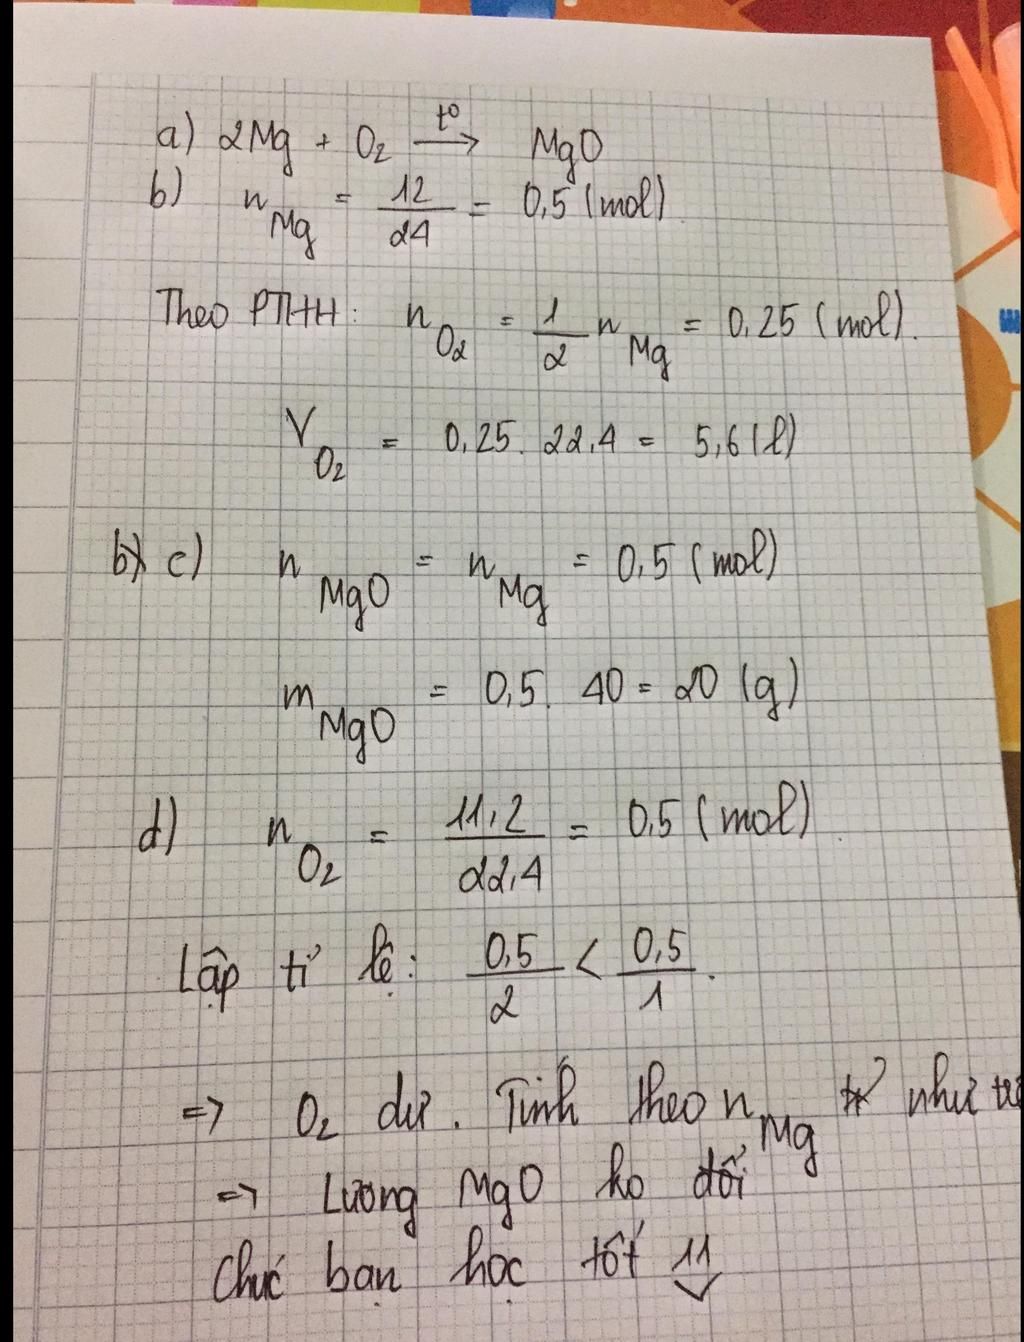 a) 2Mg + O₂ →(t⁰) MgO
b) n_Mg = 12/24 = 0,5 (mol).
Theo PTHH: n_O₂ = 1/2 n_Mg = 0,25 (mol).
V_O₂ = 0,25. 22,4 = 5,6 (l)
c) n_MgO = n_Mg = 0,5 (mol)
m_MgO = 0,5. 40 = 20 (g)
d) n_O₂ = 11,2/22,4 = 0,5 (mol)
Lập tỉ lệ: 0,5/2 < 0,5/1.
=> O₂ dư. Tính theo n_Mg như
=> Lượng MgO ko đổi
Chúc bạn học tốt